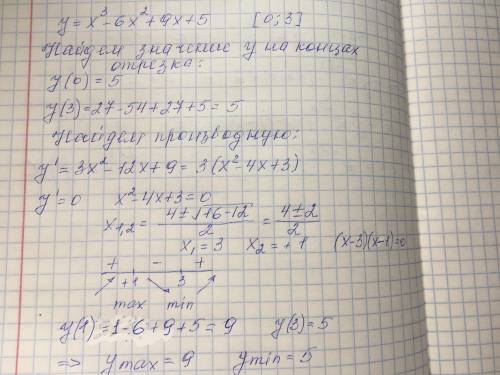 y = x³-6x²+9x+5 [0;3]
Найдем значение y на концах
отрезка:
y(0) = 5
y(3)=27-54+27+5=5
Найдем производную:
y' = 3x²-12x+9 = 3(x²-4x+3)
y'=0 x²-4x+3=0
x₁,₂ = (4±√16-12)/2 = (4±2)/2
x₁=3 x₂=+1 (x-3)(x-1)=0
+ - +
+1 3
max min
y(1)=1-6+9+5=9 y(3)=5
=> ymax = 9 ymin=5